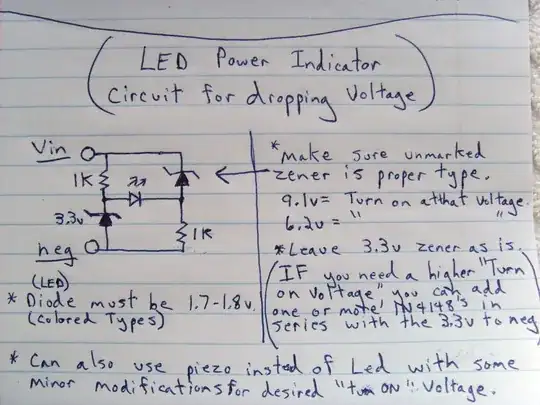 LED Power Indicator
Circuit for dropping Voltage
Vin
1K
3.3v
1K
neg
(LED)
* Diode must be 1.7-1.8v.
(Colored Types)
* Make sure unmarked
zener is proper type.
9.1v = Turn on at that voltage.
6.2v = " "
* Leave 3.3v zener as is.
(IF you need a higher "Turn
on voltage" you can add
one or mote IN4148's in
series with the 3.3v to neg)
* Can also use piezo insted of Led with some
minor modifications for desired "turn ON" Voltage.